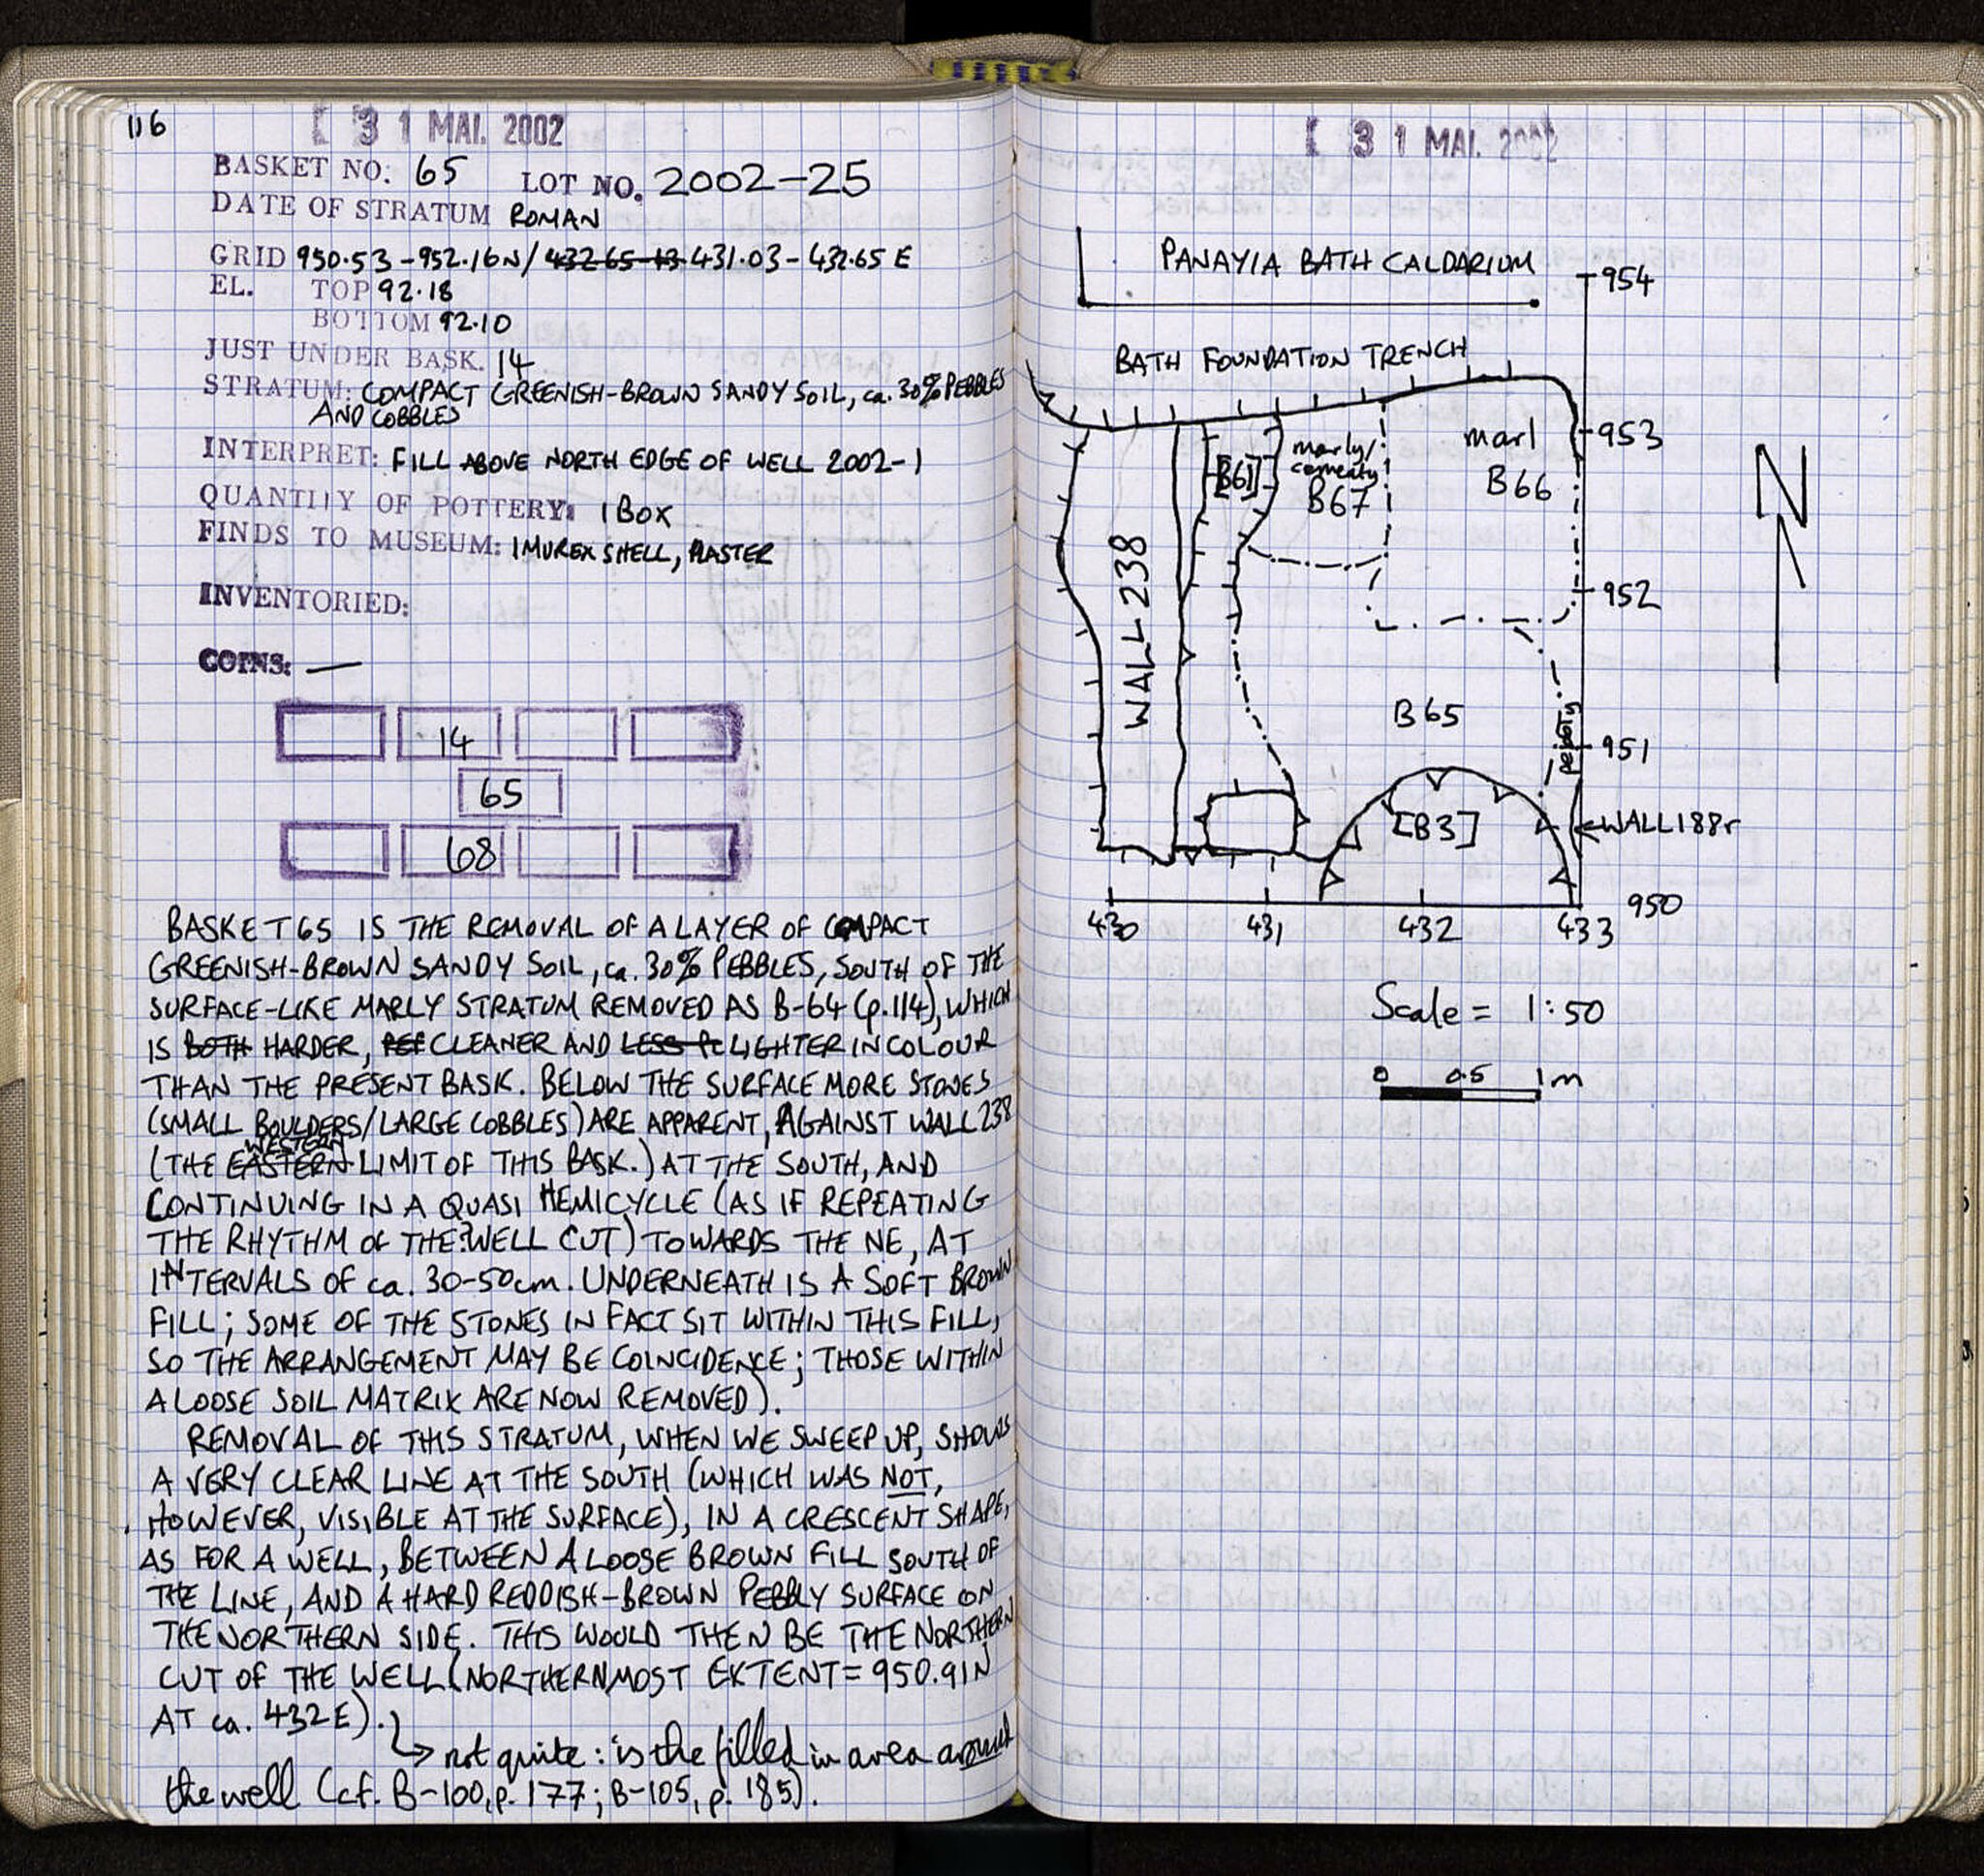 116
31 MAI. 2002
BASKET NO: 65 LOT NO. 2002-25
DATE OF STRATUM ROMAN
GRID 950.53-952.16N/ 432.65-43 431.03-432.65 E
EL. TOP 92.18
BOTTOM 92.10
JUST UNDER BASK. 14
STRATUM: COMPACT GREENISH-BROWN SANDY SOIL, ca. 30% PEBBLES
AND COBBLES
INTERPRET: FILL ABOVE NORTH EDGE OF WELL 2002-1
QUANTITY OF POTTERY: 1 BOX
FINDS TO MUSEUM: 1 MUREX SHELL, PLASTER
INVENTORIED:
COINS: —
14
65
68
BASKET 65 IS THE REMOVAL OF A LAYER OF COMPACT
GREENISH-BROWN SANDY SOIL, ca. 30% PEBBLES, SOUTH OF THE
SURFACE-LIKE MARLY STRATUM REMOVED AS B-64 (p.114), WHICH
IS BOTH HARDER, CLEANER AND LESS LIGHTER IN COLOUR
THAN THE PRESENT BASK. BELOW THE SURFACE MORE STONES
(SMALL BOULDERS/LARGE COBBLES) ARE APPARENT, AGAINST WALL 238
WESTERN
(THE EASTERN LIMIT OF THIS BASK.) AT THE SOUTH, AND
CONTINUING IN A QUASI HEMICYCLE (AS IF REPEATING
THE RHYTHM OF THE ?WELL CUT) TOWARDS THE NE, AT
INTERVALS OF ca. 30-50cm. UNDERNEATH IS A SOFT BROWN
FILL; SOME OF THE STONES IN FACT SIT WITHIN THIS FILL,
SO THE ARRANGEMENT MAY BE COINCIDENCE; THOSE WITHIN
A LOOSE SOIL MATRIX ARE NOW REMOVED).
REMOVAL OF THIS STRATUM, WHEN WE SWEEP UP, SHOWS
A VERY CLEAR LINE AT THE SOUTH (WHICH WAS NOT,
HOWEVER, VISIBLE AT THE SURFACE), IN A CRESCENT SHAPE,
AS FOR A WELL, BETWEEN A LOOSE BROWN FILL SOUTH OF
THE LINE, AND A HARD REDDISH-BROWN PEBBLY SURFACE ON
THE NORTHERN SIDE. THIS WOULD THEN BE THE NORTHERN
CUT OF THE WELL (NORTHERNMOST EXTENT = 950.91N
AT ca. 432E).
→ not quite: is the filled in area around
the well (cf. B-100, p. 177; B-105, p. 185).
31 MAI. 2002
PANAYIA BATH CALDARIUM
954
BATH FOUNDATION TRENCH
953
marly/
cementy
B67
marl
B66
[B61]
N
WALL 238
952
B65
pebbly
951
[B3]
WALL 188r
950
430 431 432 433
Scale = 1:50
0 0.5 1m